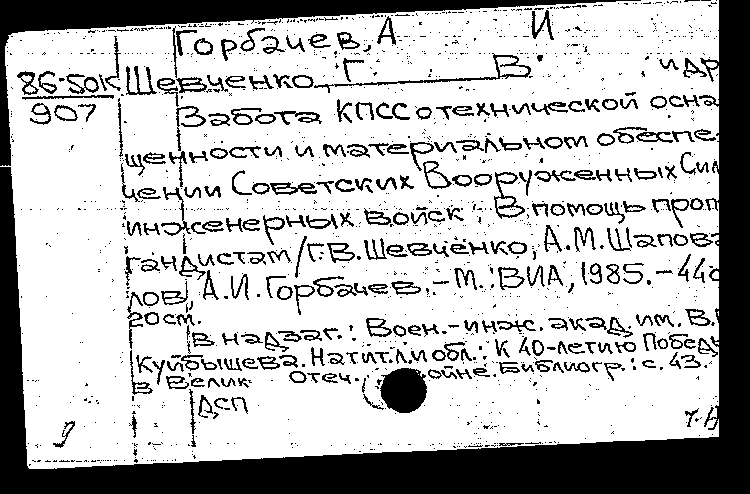 Горбачев, А И
86-50К Шевченко, Г В и др
907 Забота КПСС о технической осна
щенности и материальном обеспе-
чении Советских Вооруженных Сил
инженерных войск: В помощь проп
гандистам/Г.В.Шевченко, А.М.Шапова
лов, А.И.Горбачев. - М.: ВИА, 1985. - 44с
20см.
В надзаг.: Воен.-инж. акад. им. В.
Куйбышева. На тит.л.и обл.: К 40-летию Победы
в Велик. Отеч. войне. Библиогр.: с. 43.
ДСП
9